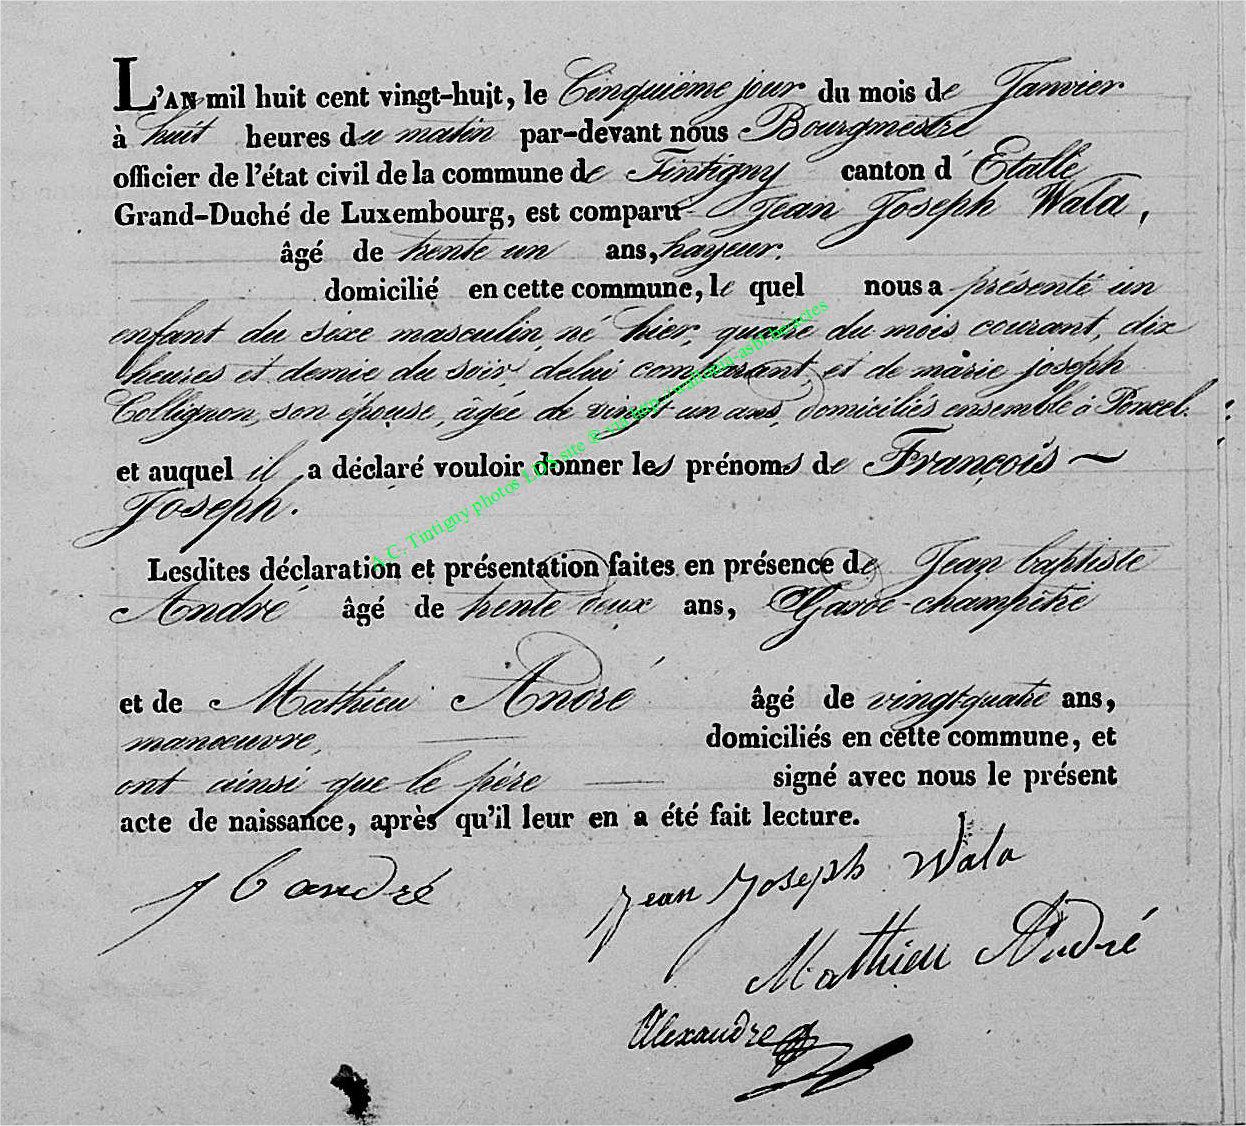 L'AN mil huit cent vingt-huit, le Cinquième jour du mois de Janvier
à huit heures du matin par-devant nous Bourgmestre
officier de l'état civil de la commune de Tintigny canton d'Etalle
Grand-Duché de Luxembourg, est comparu Jean Joseph Wala,
âgé de trente un ans, hayeur.
domicilié en cette commune, le quel nous a présenté un
enfant du sexe masculin, né hier, quatre du mois courant, dix
heures et demie du soir, delui comparant, et de marie joseph
Collignon, son épouse, âgée de vingt un ans, domiciliés ensemble à Poncel.
et auquel il a déclaré vouloir donner les prénoms de François
Joseph.
A.C. Tintigny photos LDS site & via http://wallonia-asbl.be/actes
Lesdites déclaration et présentation faites en présence de Jean baptiste
André âgé de trente deux ans, Garde-champêtre
et de Mathieu André âgé de vingt-quatre ans,
manœuvre, domiciliés en cette commune, et
ont ainsi que le père signé avec nous le présent
acte de naissance, après qu'il leur en a été fait lecture.
J b andré
Jean Joseph Wala
Mathieu André
Alexandre